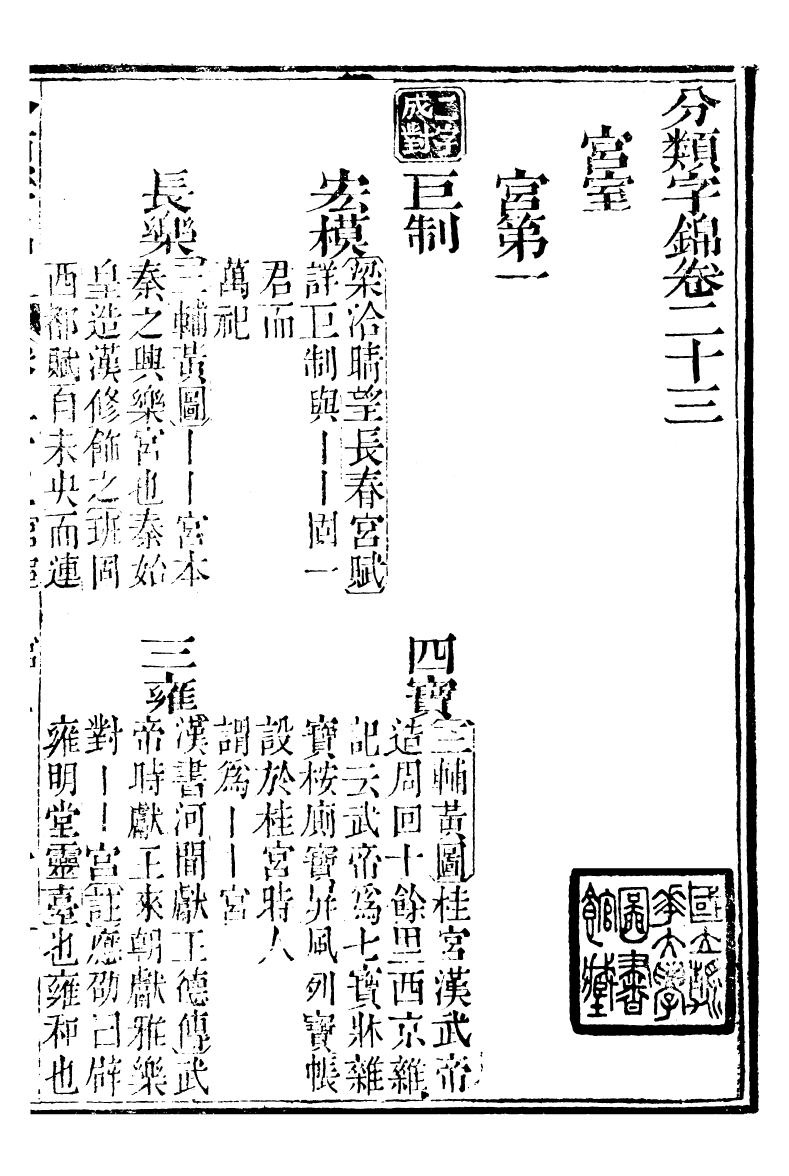 分類字錦卷二十三
宮室
宮第一
二字
成對
巨制
宏模
梁洽晴望長春宮賦
詳巨制與丨丨固一
君而
萬祀
四寶
三輔黃圖桂宮漢武帝
造周回十餘里西京雜
記云武帝爲七寶牀雜
寶桉廁寶屏風列寶帳
設於桂宮時人
謂爲丨丨宮
長樂
三輔黃圖丨丨宮本
秦之興樂宮也秦始
皇造漢修飾之班固
西都賦自未央而連
三雍
漢書河間獻王德傳武
帝時獻王來朝獻雅樂
對丨丨宮註應劭曰辟
雍明堂靈臺也雍和也
國立清
華大學
圖書
館藏